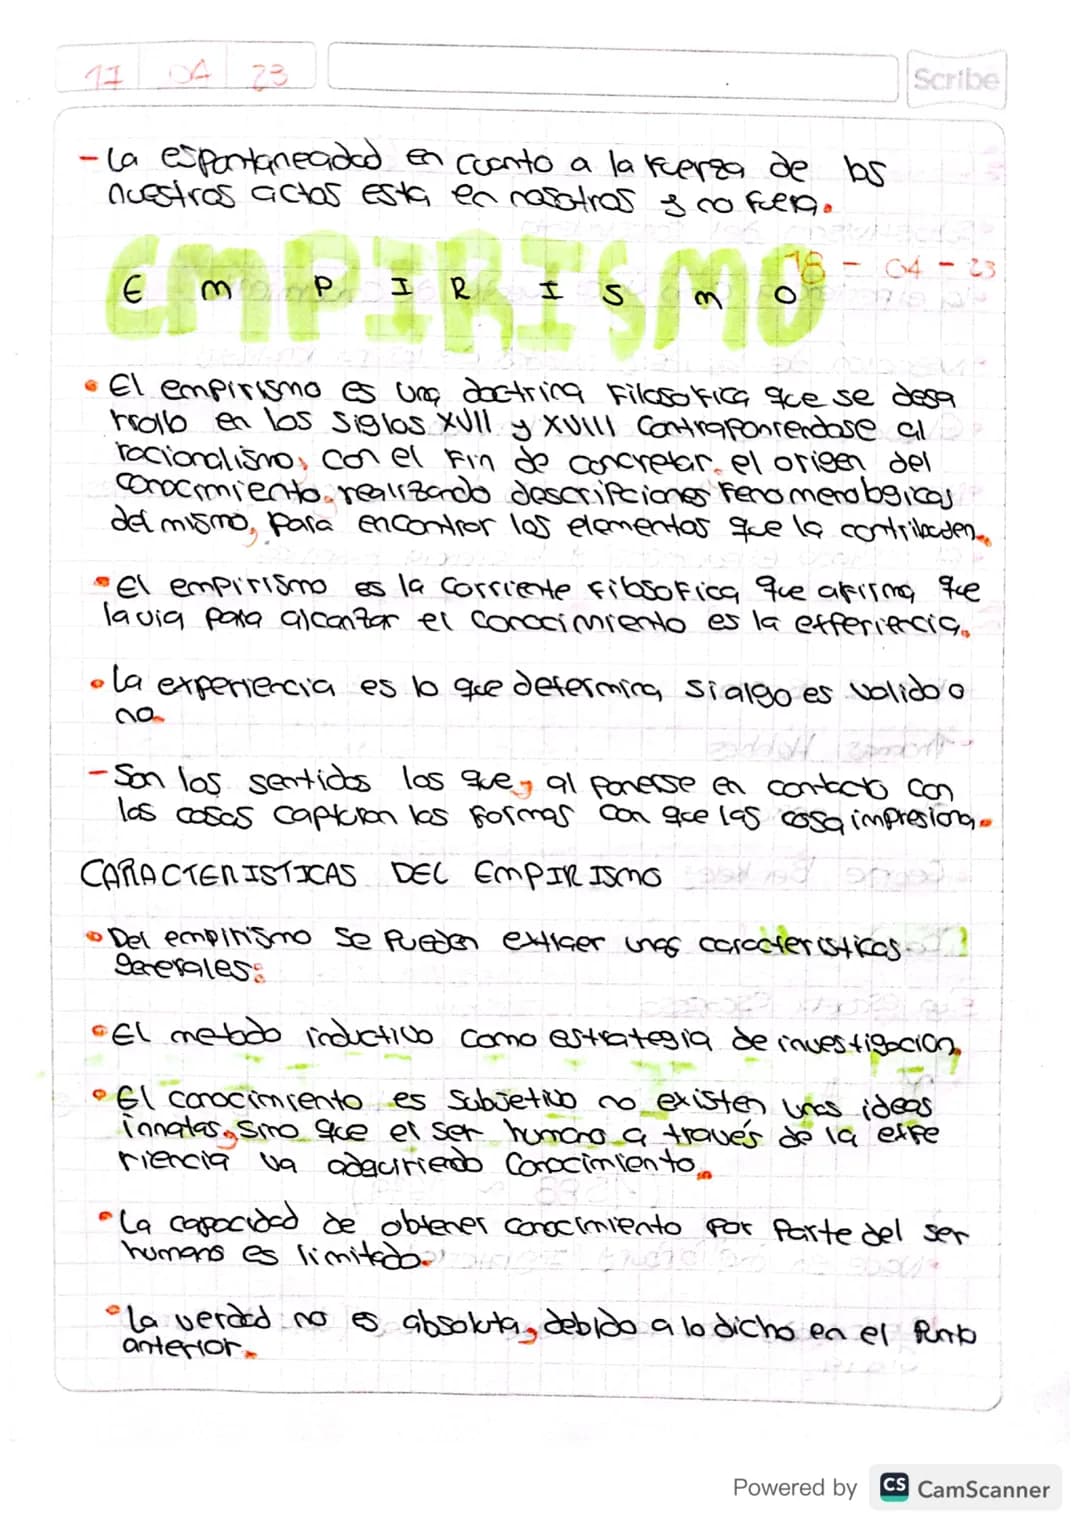 17 04 23
Scribe
- La espontaneidad en cuanto a la fuerza de los
nuestros actos esta en nosotros y no fuera.
EMPIRISMO
E m P I R I S m O
18 - 04 - 23
• El empirismo es una doctrina Filosofica que se desa
rrollo en los siglos XVII y XVIII Contraponiendose al
racionalismo, con el Fin de concretar el origen del
conocimiento. realizando descripciones Fenomenologicas
del mismo, para encontrar los elementos que la contribuden.
• El empirismo es la Corriente Filosofica que afirma que
la via para alcanzar el conocimiento es la experiencia.
• La experiencia es lo que determina si algo es valido o
no.
- Son los sentidos los que, al ponerse en contacto con
las cosas capturan las formas con que las cosa impresiona.
CARACTERISTICAS DEL EMPIRISMO
• Del empirismo se Pueden extraer unas caracteristicas
generales:
• El metodo inductivo como estrategia de investigacion.
• El conocimiento es subjetivo no existen unas ideas
innatas, sino que el ser humano a través de la expe
riencia va adquiriendo Conocimiento.
• La capacidad de obtener conocimiento por parte del ser
humano es limitado.
• La verdad no es absoluta, debido a lo dicho en el Punto
anterior.
Powered by CS CamScanner